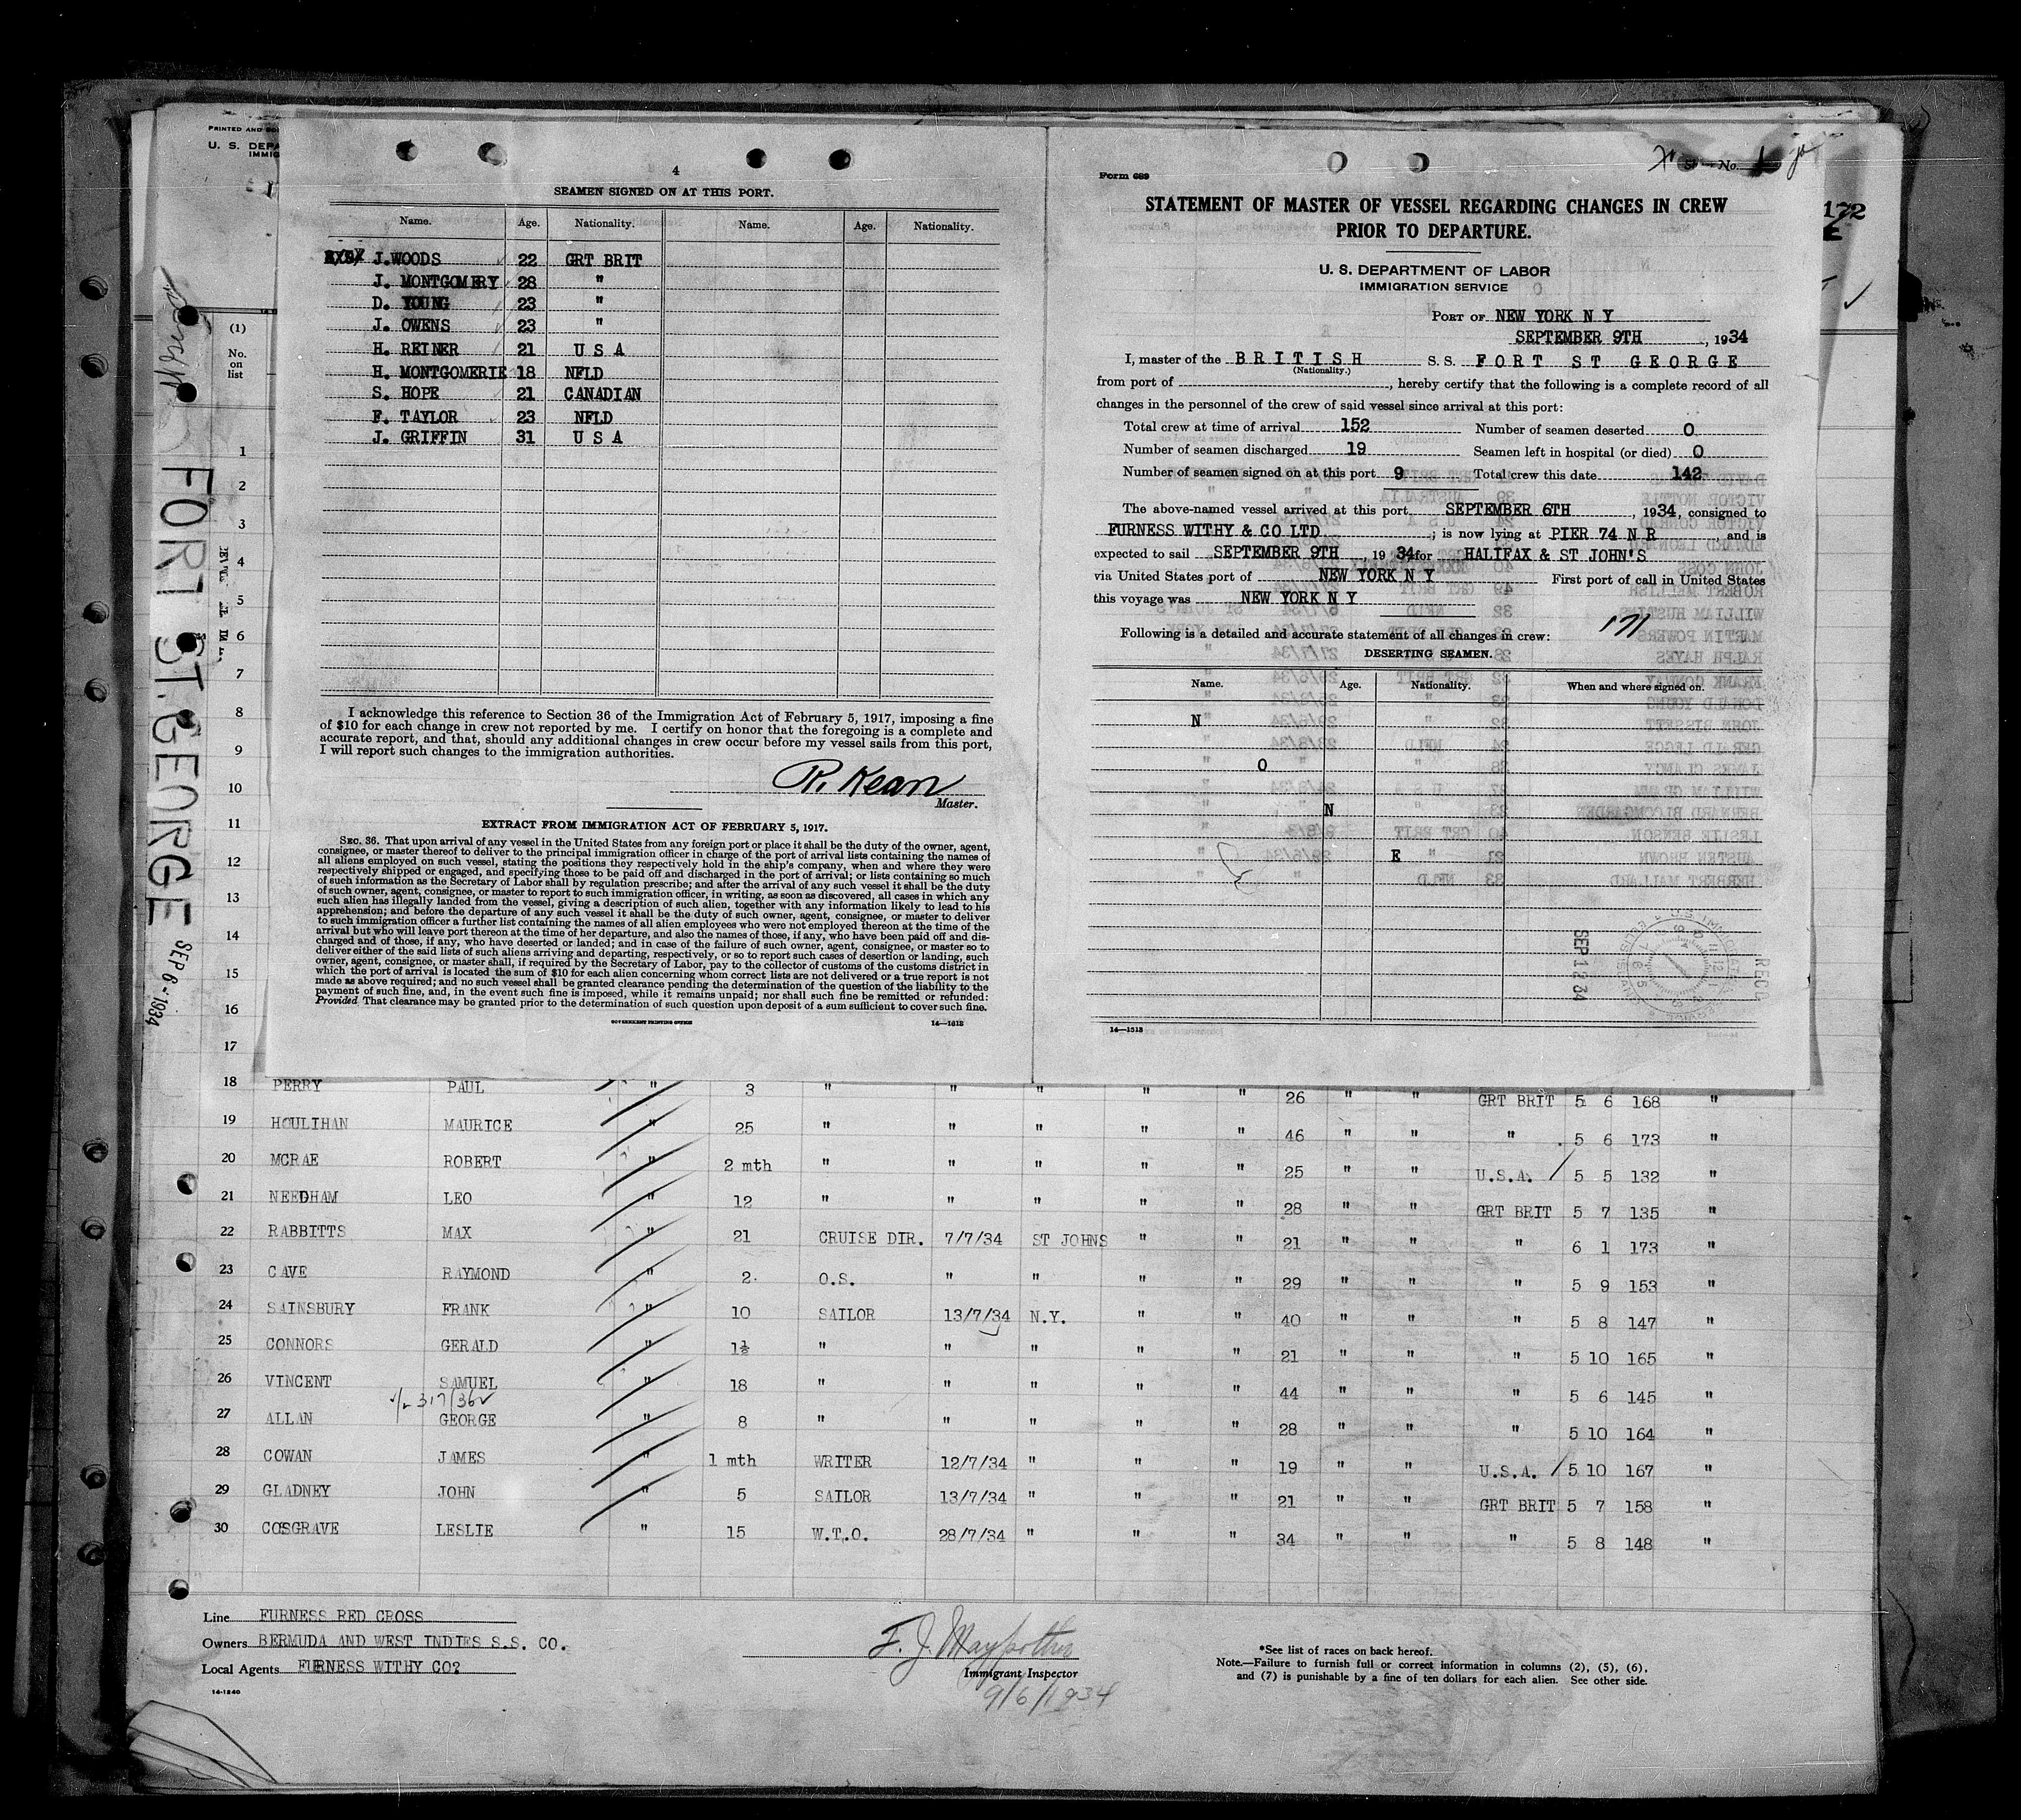 4
SEAMEN SIGNED ON AT THIS PORT.
Name. Age. Nationality. Name. Age. Nationality.
J. WOODS 22 GRT BRIT
J. MONTGOMERY 28 "
D. YOUNG 23 "
J. OWENS 23 "
H. REINER 21 U S A
H. MONTGOMERIE 18 NFLD
S. HOPE 21 CANADIAN
F. TAYLOR 23 NFLD
J. GRIFFIN 31 U S A
I acknowledge this reference to Section 36 of the Immigration Act of February 5, 1917, imposing a fine
of $10 for each change in crew not reported by me. I certify on honor that the foregoing is a complete and
accurate report, and that, should any additional changes in crew occur before my vessel sails from this port,
I will report such changes to the immigration authorities.
R. Kean
Master.
EXTRACT FROM IMMIGRATION ACT OF FEBRUARY 5, 1917.
SEC. 36. That upon arrival of any vessel in the United States from any foreign port or place it shall be the duty of the owner, agent,
consignee, or master thereof to deliver to the principal immigration officer in charge of the port of arrival lists containing the names of
all aliens employed on such vessel, stating the positions they respectively hold in the ship's company, when and where they were
respectively shipped or engaged, and specifying those to be paid off and discharged in the port of arrival; or lists containing so much
of such information as the Secretary of Labor shall by regulation prescribe; and after the arrival of any such vessel it shall be the duty
of such owner, agent, consignee, or master to report to such immigration officer, in writing, as soon as discovered, all cases in which any
such alien has illegally landed from the vessel, giving a description of such alien, together with any information likely to lead to his
apprehension; and before the departure of any such vessel it shall be the duty of such owner, agent, consignee, or master to deliver
to such immigration officer a further list containing the names of all alien employees who were not employed thereon at the time of the
arrival but who will leave port thereon at the time of her departure, and also the names of those, if any, who have been paid off and dis-
charged and of those, if any, who have deserted or landed; and in case of the failure of such owner, agent, consignee, or master so to
deliver either of the said lists of such aliens arriving and departing, respectively, or so to report such cases of desertion or landing, such
owner, agent, consignee, or master shall, if required by the Secretary of Labor, pay to the collector of customs of the customs district in
which the port of arrival is located the sum of $10 for each alien concerning whom correct lists are not delivered or a true report is not
made as above required; and no such vessel shall be granted clearance pending the determination of the question of the liability to the
payment of such fine, and, in the event such fine is imposed, while it remains unpaid; nor shall such fine be remitted or refunded:
Provided That clearance may be granted prior to the determination of such question upon deposit of a sum sufficient to cover such fine.
GOVERNMENT PRINTING OFFICE 14—1513
Form 689
No. 1
STATEMENT OF MASTER OF VESSEL REGARDING CHANGES IN CREW
PRIOR TO DEPARTURE.
U. S. DEPARTMENT OF LABOR
IMMIGRATION SERVICE
PORT OF NEW YORK N Y
SEPTEMBER 9TH, 1934
I, master of the BRITISH S.S. FORT ST GEORGE
(Nationality.)
from port of , hereby certify that the following is a complete record of all
changes in the personnel of the crew of said vessel since arrival at this port:
Total crew at time of arrival 152 Number of seamen deserted 0
Number of seamen discharged 19 Seamen left in hospital (or died) 0
Number of seamen signed on at this port 9 Total crew this date 142
The above-named vessel arrived at this port SEPTEMBER 6TH, 1934, consigned to
FURNESS WITHY & CO LTD; is now lying at PIER 74 N R, and is
expected to sail SEPTEMBER 9TH, 1934 for HALIFAX & ST JOHN'S
via United States port of NEW YORK N Y First port of call in United States
this voyage was NEW YORK N Y
Following is a detailed and accurate statement of all changes in crew: 171
DESERTING SEAMEN.
Name. Age. Nationality. When and where signed on.
N
O
N
E
SEP 12 34
REC'D
14—1513
PRINTED AND
U. S. DEPA
IMMIG
172
FORT ST. GEORGE SEP 6 - 1934
(1)
No.
on
list
1
2
3
4
5
6
7
8
9
10
11
12
13
14
15
16
17
18 PERRY PAUL " 3 " " " " " 26 " " GRT BRIT 5 6 168 "
19 HOULIHAN MAURICE " 25 " " " " " 46 " " " 5 6 173 "
20 MCRAE ROBERT " 2 mth " " " " " 25 " " U.S.A. 5 5 132 "
21 NEEDHAM LEO " 12 " " " " " 28 " " GRT BRIT 5 7 135 "
22 RABBITTS MAX " 21 CRUISE DIR. 7/7/34 ST JOHNS " " 21 " " " 6 1 173 "
23 CAVE RAYMOND " 2 O.S. " " " " 29 " " " 5 9 153 "
24 SAINSBURY FRANK " 10 SAILOR 13/7/34 N.Y. " " 40 " " " 5 8 147 "
25 CONNORS GERALD " 1½ " " " " " 21 " " " 5 10 165 "
26 VINCENT SAMUEL " 18 " " " " " 44 " " " 5 6 145 "
317/36
27 ALLAN GEORGE " 8 " " " " " 28 " " " 5 10 164 "
28 COWAN JAMES " 1 mth WRITER 12/7/34 " " " 19 " " U.S.A. 5 10 167 "
29 GLADNEY JOHN " 5 SAILOR 13/7/34 " " " 21 " " GRT BRIT 5 7 158 "
30 COSGRAVE LESLIE " 15 W.T.O. 28/7/34 " " " 34 " " " 5 8 148 "
Line FURNESS RED CROSS
Owners BERMUDA AND WEST INDIES S.S. CO.
Local Agents FURNESS WITHY CO?
14-1240
Immigrant Inspector
9/6/1934
*See list of races on back hereof.
Note.—Failure to furnish full or correct information in columns (2), (5), (6),
and (7) is punishable by a fine of ten dollars for each alien. See other side.